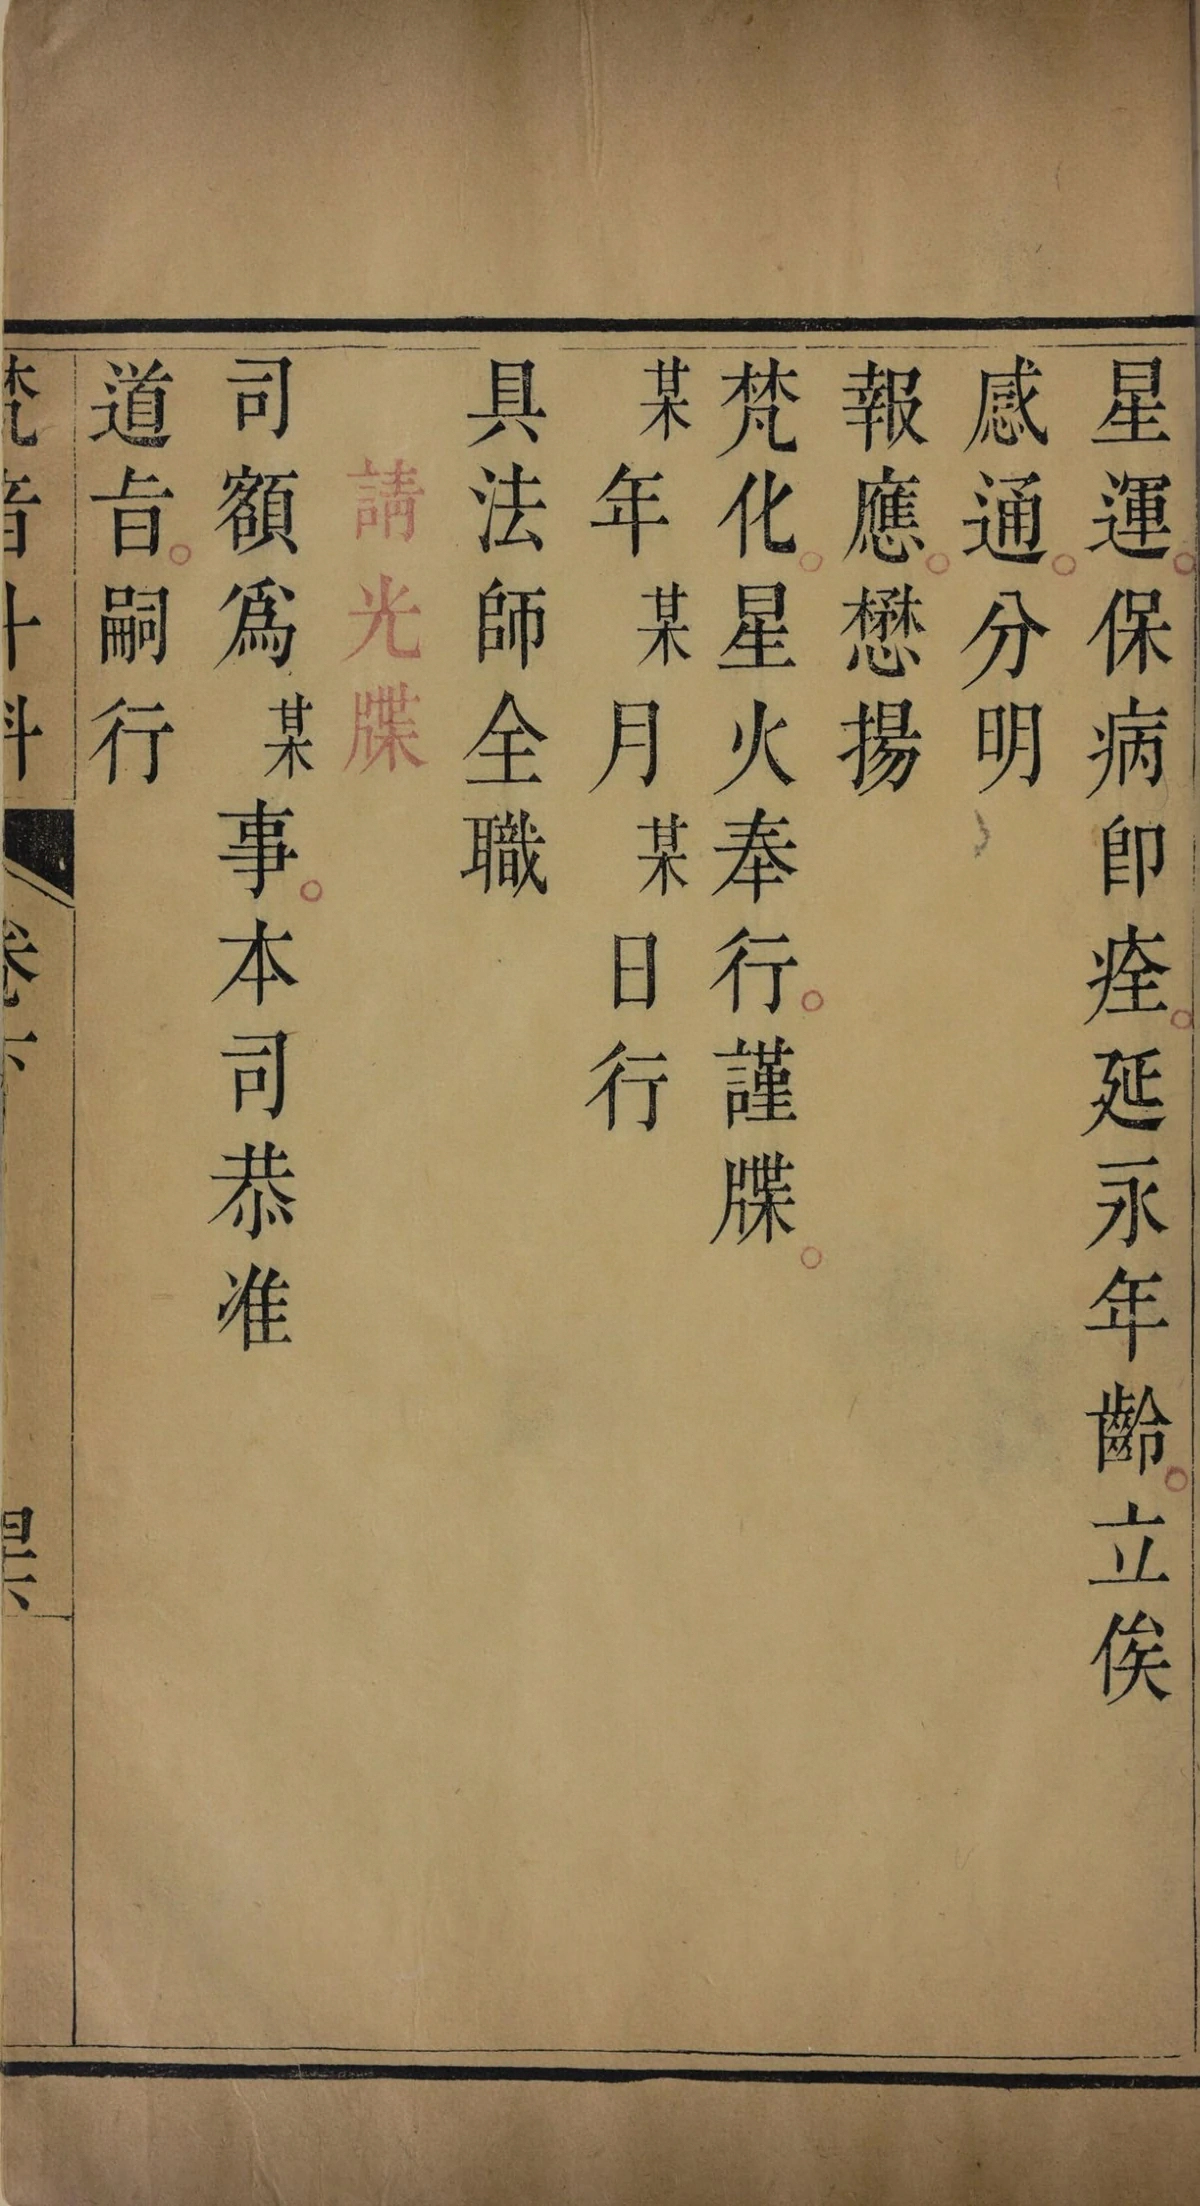 星運。保病卽痊。延永年齡。立俟
感通。分明
報應。懋揚
梵化。星火奉行。謹牒。
某年某月某日行
具法師全職
請光牒
司額爲某事。本司恭准
道旨。嗣行
梵音斗科